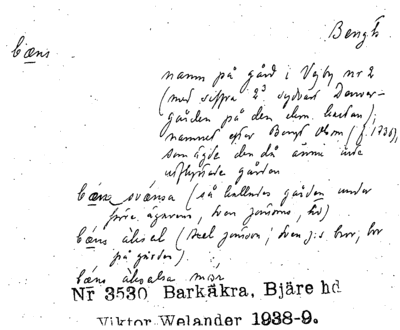 Bengts
bæns
namn på gård i Vejby nr 2
(med siffra 2³ sydväst Danner-
gården på den ekon. kartan);
namnet efter Bengt Olson (f. 1730),
som ägde den då ännu icke
utflyttade gården
bæns svænsa (så kallades gården under
förre ägaren, Sven Jönsson,
bæns áksal (Axel Jönsson; Sven J:s bror, bor
på gården).
bæns áksalsa
Nr 3530 Barkåkra, Bjäre hd
Viktor Welander 1938-9.